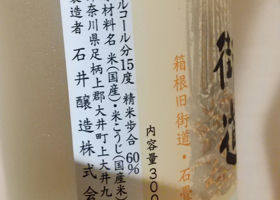 街道
箱根旧街道・石畳
内容量300
ルコール分15度 精米歩合 60%
材料名 米(国産)・米こうじ(国産米)
奈川県足柄上郡大井町上大井九
製造者 石井醸造株式会